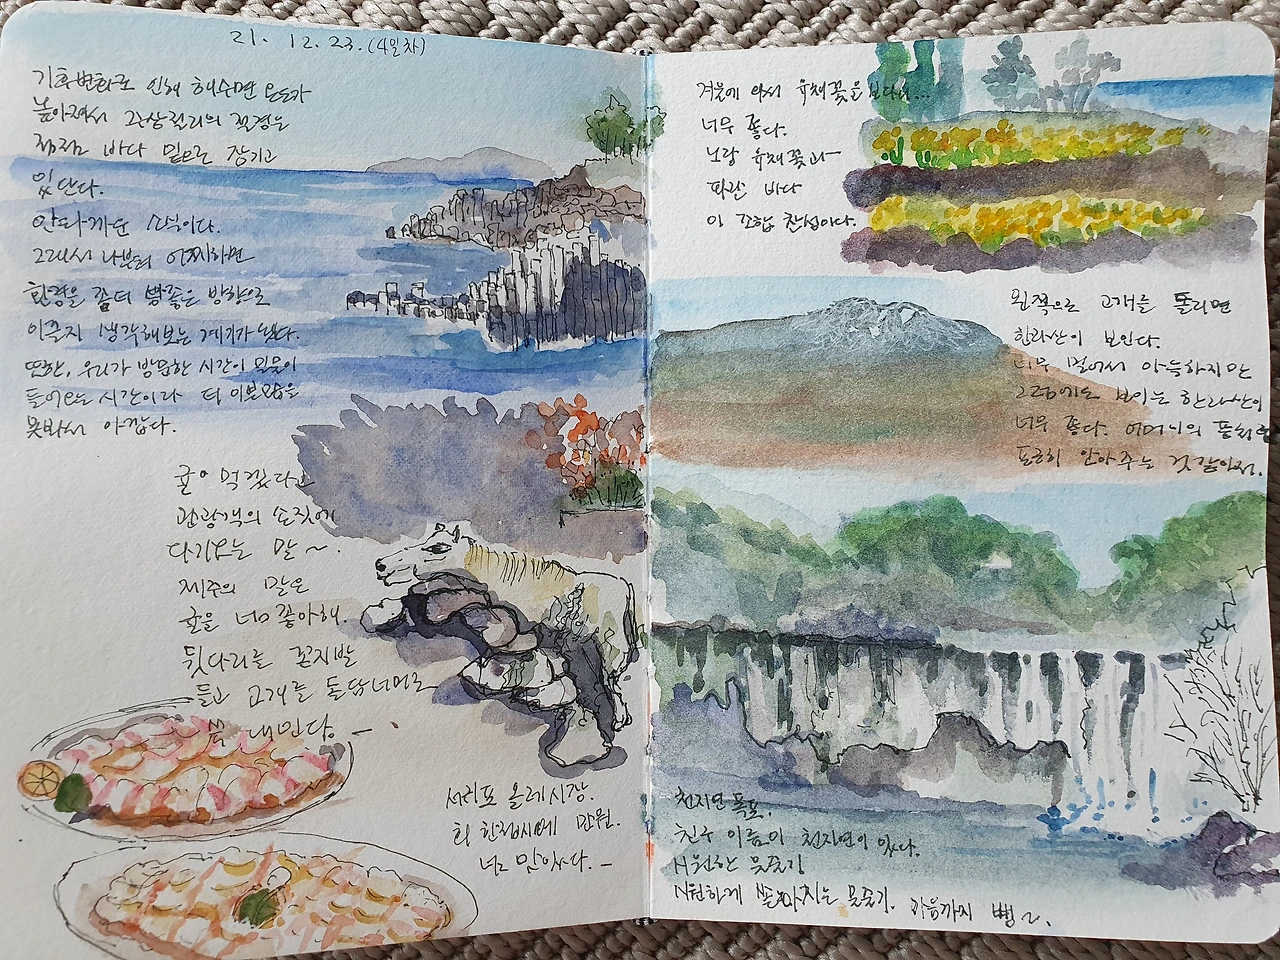 21. 12. 23. (4일차)
기후변화로 인해 해수면 온도가
높아져서 주상절리의 절경은
점점 바다 밑으로 잠기고
있단다.
안타까운 소식이다.
그래서 나부터 어찌하면
환경을 좀더 좋은 방향으로
이끌지 생각해보는 계기가 됐다.
또한, 우리가 방문한 시간이 밀물이
들어오는 시간이라 더 이쁜모습을
못봐서 아깝다.
귤이 먹겠다고
관광객의 손짓에
다가오는 말~.
제주의 말은
귤을 너무 좋아해.
뒷다리를 꼰지발
들고 고개를 돌담너머로
쑥 내민다.
서귀포 올레시장.
회 한접시에 만원.
너무 맛있다.
겨울에 와서 유채꽃을 보다니...
너무 좋다.
노랑 유채꽃과
파란 바다
이 조합 찬성이다.
왼쪽으로 고개를 돌리면
한라산이 보인다.
너무 멀어서 아득하지만
그럼에도 보이는 한라산이
너무 좋다. 어머니의 품처럼
포근히 안아주는 것 같아서.
천지연 폭포.
친구 이름이 천지연이 있다.
시원한 물줄기
시원하게 쏟아지는 물줄기. 마음까지 뻥~.